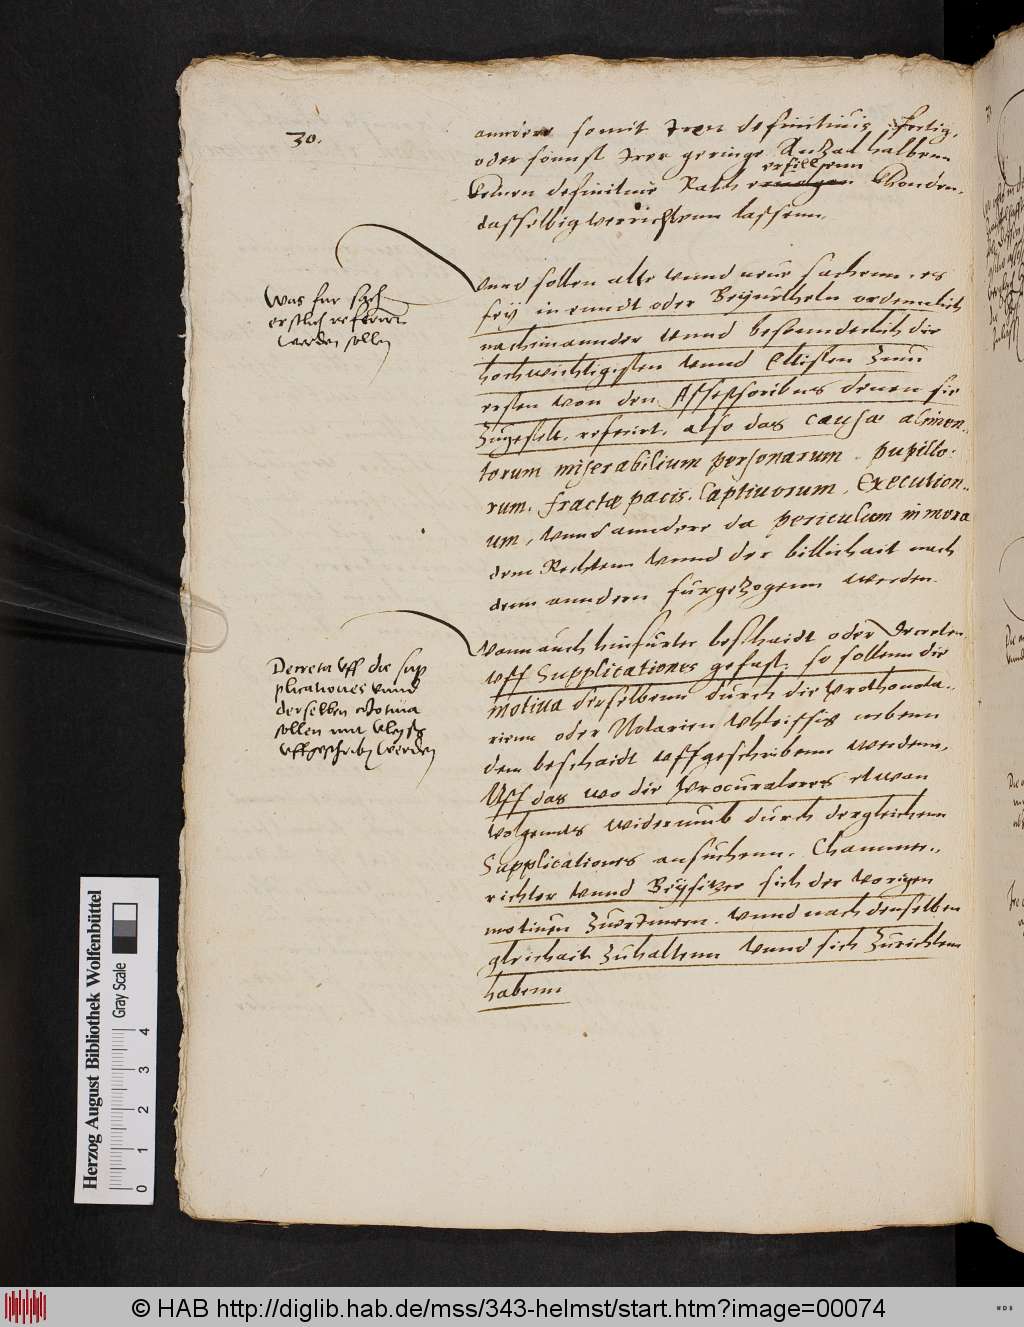 30.
anndere somit Iren definitiuis fertig,
oder sonnst Irer geringe Anzal halbenn
keinen definitiue Rath erfillenn konden,
dasselbig verrichtenn lassenn.
Was fur sach
erstlich referirt
werden sollen
Vnnd sollen alte vnnd neue sachenn, es
sey in enndt oder Beyurtheln ordennlich
nacheinannder vnnd besonnderlich die
hochwichtigisten vnnd Eltisten zum
ersten von den Assessoribus denen sie
zugestelt, referirt, also das causæ alimen-
torum miserabilium personarum. pupillo-
rum. fractæ pacis. Captiuorum, Execution-
um, vnnd anndere da periculum in mora
dem Rechten vnnd der billichait nach
denn anndern fürgezogenn werden.
Decreta vff die sup
plicationes vnnd
derselben motiua
sollen mit vleys
vffgeschriben werden
Wann auch hinfürter beschaidt oder Decreten
vff Supplicationes gefast, so sollenn die
motiua dieselbenn durch die Prothonota-
rienn oder Notarien vleissig nebenn
dem beschaidt vffgeschribenn werdenn,
Vff das wo die Procuratores etwan
volgennds widerumb durch dergleichenn
Supplicationes ansuchenn, Chammer-
richter vnnd Beysitzer sich der vorigen
motiuen zuerInnern. vnnd nach denselben
gleichait zuhaltenn vnnd sich zurichtenn
habenn
Herzog August Bibliothek Wolfenbüttel
Gray Scale
0 1 2 3 4
© HAB http://diglib.hab.de/mss/343-helmst/start.htm?image=00074